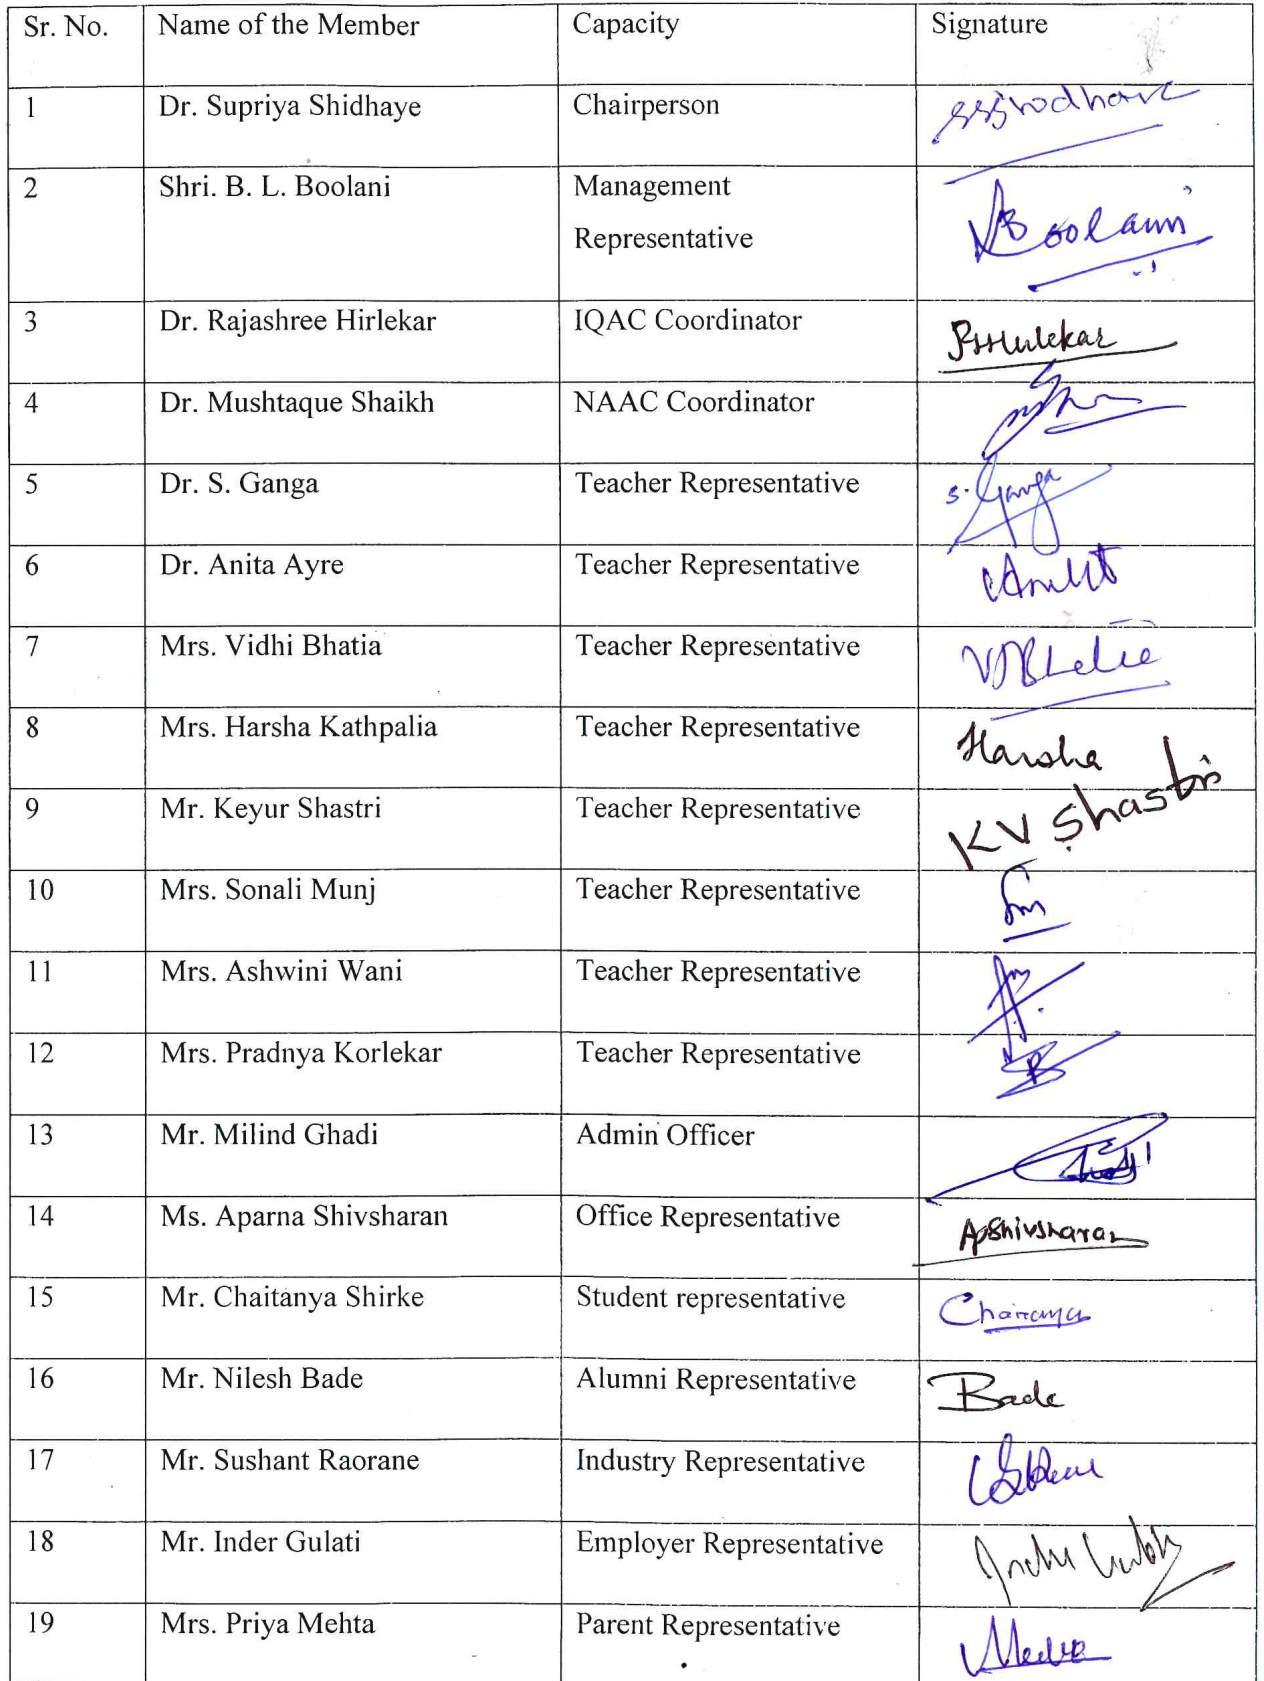 Sr. No. Name of the Member Capacity Signature
1 Dr. Supriya Shidhaye Chairperson
2 Shri. B. L. Boolani Management
Representative Boolani
3 Dr. Rajashree Hirlekar IQAC Coordinator
4 Dr. Mushtaque Shaikh NAAC Coordinator
5 Dr. S. Ganga Teacher Representative S. Ganga
6 Dr. Anita Ayre Teacher Representative
7 Mrs. Vidhi Bhatia Teacher Representative
8 Mrs. Harsha Kathpalia Teacher Representative Harsha
9 Mr. Keyur Shastri Teacher Representative KV Shastri
10 Mrs. Sonali Munj Teacher Representative
11 Mrs. Ashwini Wani Teacher Representative
12 Mrs. Pradnya Korlekar Teacher Representative
13 Mr. Milind Ghadi Admin Officer
14 Ms. Aparna Shivsharan Office Representative APShivsharan
15 Mr. Chaitanya Shirke Student representative
16 Mr. Nilesh Bade Alumni Representative Bade
17 Mr. Sushant Raorane Industry Representative
18 Mr. Inder Gulati Employer Representative
19 Mrs. Priya Mehta Parent Representative